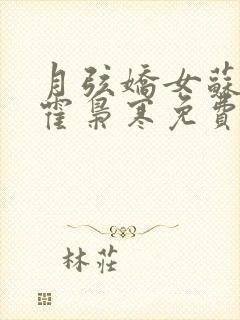 月弦嬌女蘇
霍梟寒免費
林莊